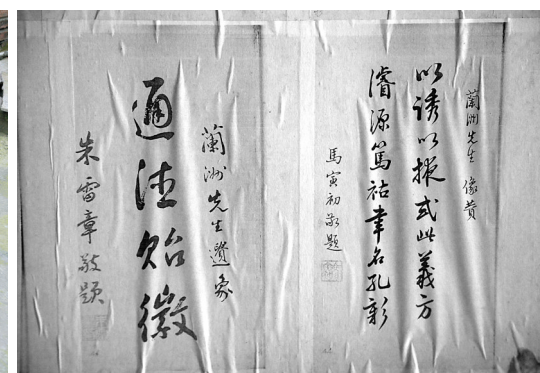 蘭洲先生 像贊
以誘以掖式此義方
濬源篤祜聿名孔彰
馬寅初敬題
蘭洲先生遺象
通德貽徽
朱雷章敬題